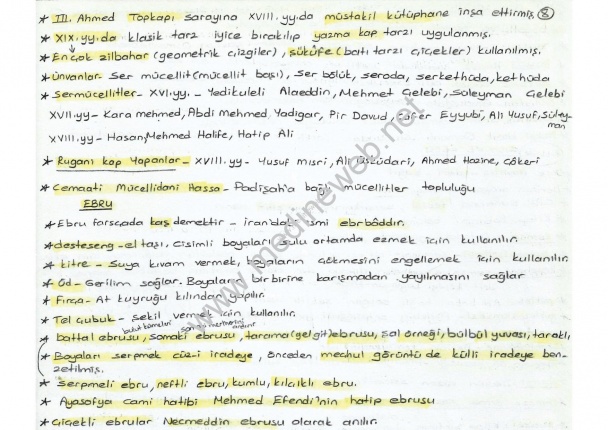 * III. Ahmed Topkapı sarayına XVIII.yy.da müstakil kütüphane inşa ettirmiş 8
* XIX.yy.da klasik tarz iyice bırakılıp yazma kap tarzı uygulanmış.
* En çok zilbahar (geometrik çizgiler), şükûfe (batı tarzı çiçekler) kullanılmış.
* Ünvanlar- Ser mücellit (mücellit başı), ser bölük, seroda, serkethüda, kethüda
* Sermücellitler- XVI.yy.- Yedikuleli Alaeddin, Mehmet Çelebi, Süleyman Çelebi
XVII.yy- Kara mehmed, Abdi Mehmed Yadigar, Pir Davud, Cafer Eyyubi, Ali Yusuf, Süley-
man
XVIII.yy- Hasan, Mehmed Halife, Hatip Ali
* Rugani kap Yapanlar- XVIII.yy- Yusuf mısri, Ali Üsküdari, Ahmed Hazine, Çâkeri
* Cemaati Mücellidani Hassa- Padişah'a bağlı mücellitler topluluğu
EBRU
* Ebru farsçada kaş demektir - iran'daki ismi ebrbâddır.
* desteseng- el taşı, Cisimli boyaları sulu ortamda ezmek için kullanılır.
* kitre- Suya kıvam vermek, boyaların çökmesini engellemek için kullanılır.
* Öd- Gerilim sağlar. Boyaların birbirine karışmadan yayılmasını sağlar
* Fırça- At kuyruğu kılından yapılır.
* Tel Çubuk- şekil vermek için kullanılır.
bulut kümeleri somaki mermerini andırır
* battal ebrusu, somaki ebrusu, tarama (gel git) ebrusu, şal örneği, bülbül yuvası, taraklı,
* Boyaları serpmek cüz-i iradeye, önceden mechul görüntü de külli iradeye ben-
zetilmiş.
* Serpmeli ebru, neftli ebru, kumlu, kılçıklı ebru.
* Ayasofya cami hatibi Mehmed Efendi'nin hatip ebrusu
* Çiçekli ebrular Necmeddin ebrusu olarak anılır.
www.medineweb.net